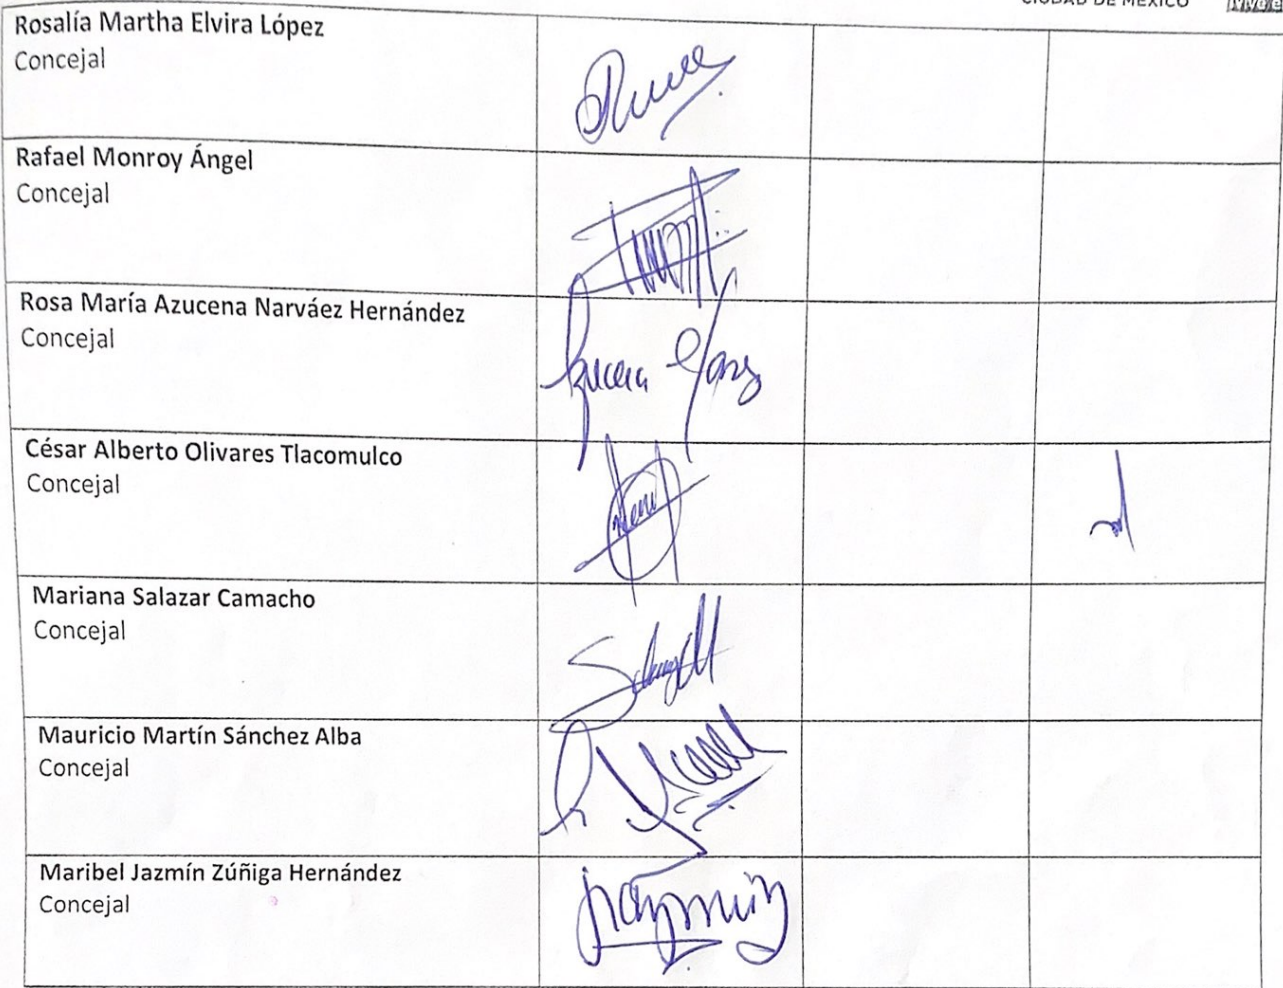 CIUDAD DE MÉXICO
Rosalía Martha Elvira López
Concejal
Rafael Monroy Ángel
Concejal
Rosa María Azucena Narváez Hernández
Concejal
César Alberto Olivares Tlacomulco
Concejal
Mariana Salazar Camacho
Concejal
Mauricio Martín Sánchez Alba
Concejal
Maribel Jazmín Zúñiga Hernández
Concejal